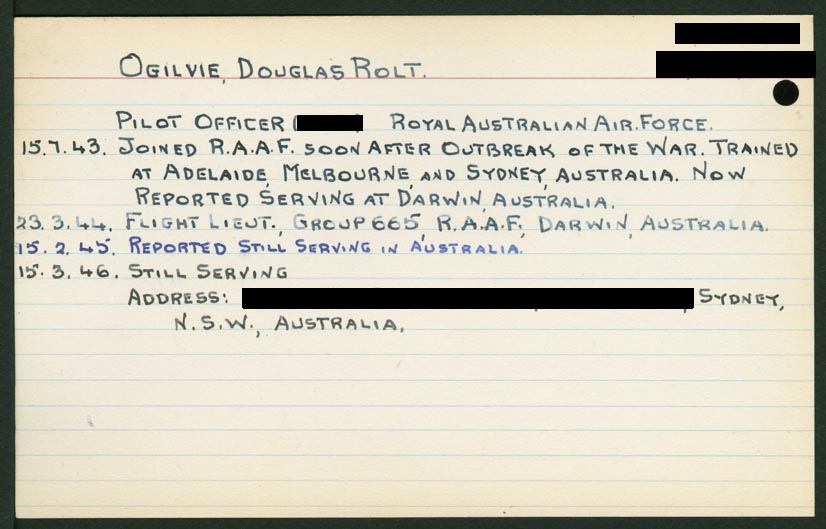 OGILVIE, DOUGLAS ROLT.
PILOT OFFICER ( ) ROYAL AUSTRALIAN AIR.FORCE.
15.7.43. JOINED R.A.A.F. SOON AFTER OUTBREAK OF THE WAR. TRAINED
AT ADELAIDE, MELBOURNE, AND SYDNEY, AUSTRALIA. NOW
REPORTED SERVING AT DARWIN, AUSTRALIA.
23.3.44. FLIGHT LIEUT., GROUP 665, R.A.A.F., DARWIN, AUSTRALIA.
15.2.45. REPORTED STILL SERVING IN AUSTRALIA.
15.3.46. STILL SERVING
ADDRESS: , SYDNEY,
N.S.W., AUSTRALIA.